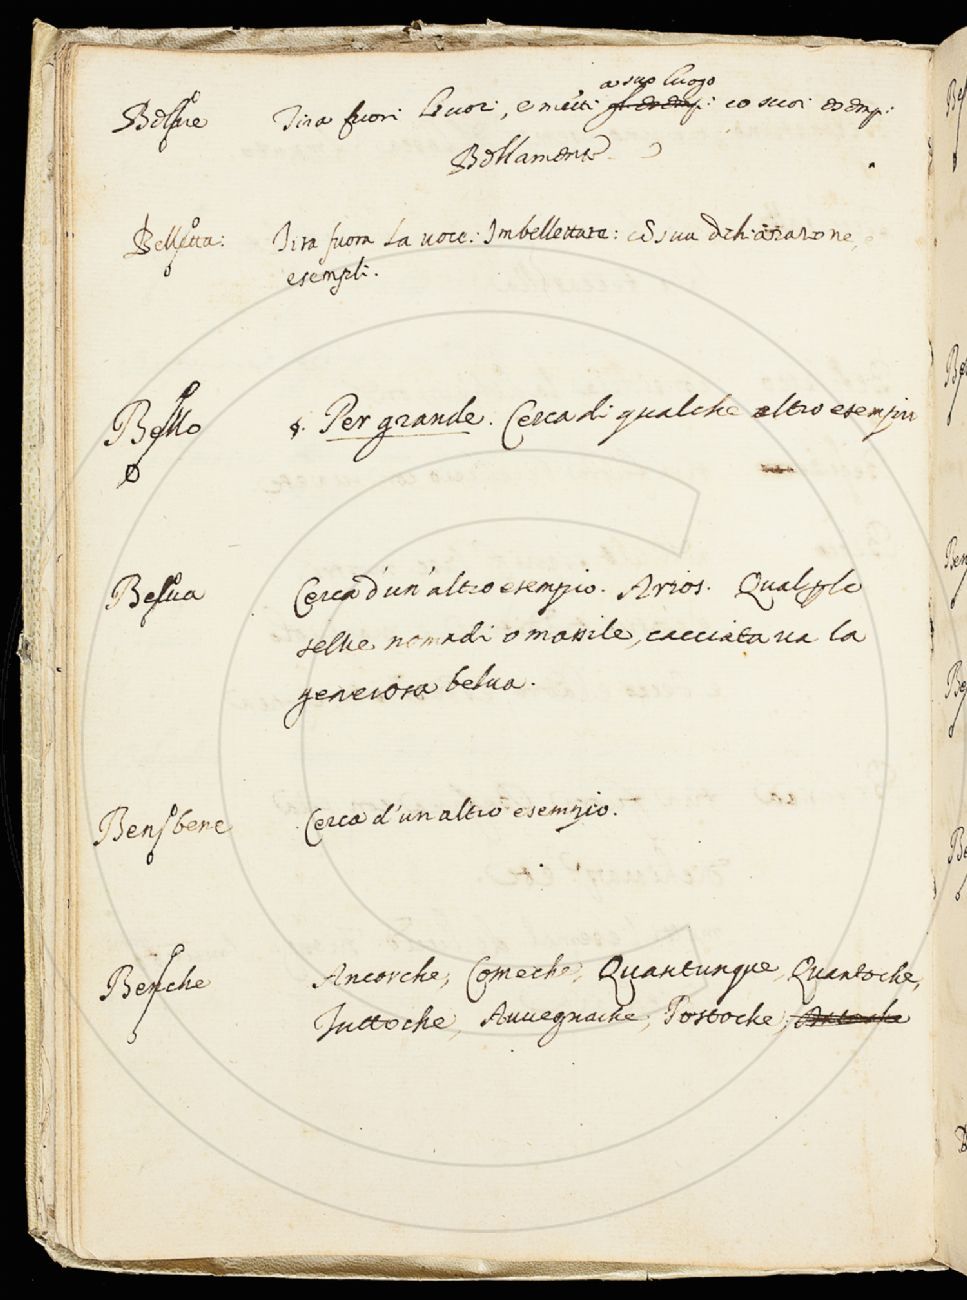 a suo luogo
Tira fuori , e metti gl'esempi: co suoi esempi:
Bellamente
Belletta: Tira fuora La uoce: Imbellettare: co sua dichiarazione, e
esempli.
Bello §. Per grande. Cerca di qualche altro esempio
Belua Cerca d'un'altro esempio. Arios. Qual per le
selue nomadi o massile, cacciata ua la
generosa belua.
Benbene Cerca d'un altro esempio.
Benche Ancorche, Comeche, Quantunque, Quantoche,
Tuttoche, Auuegnache, Postoche,